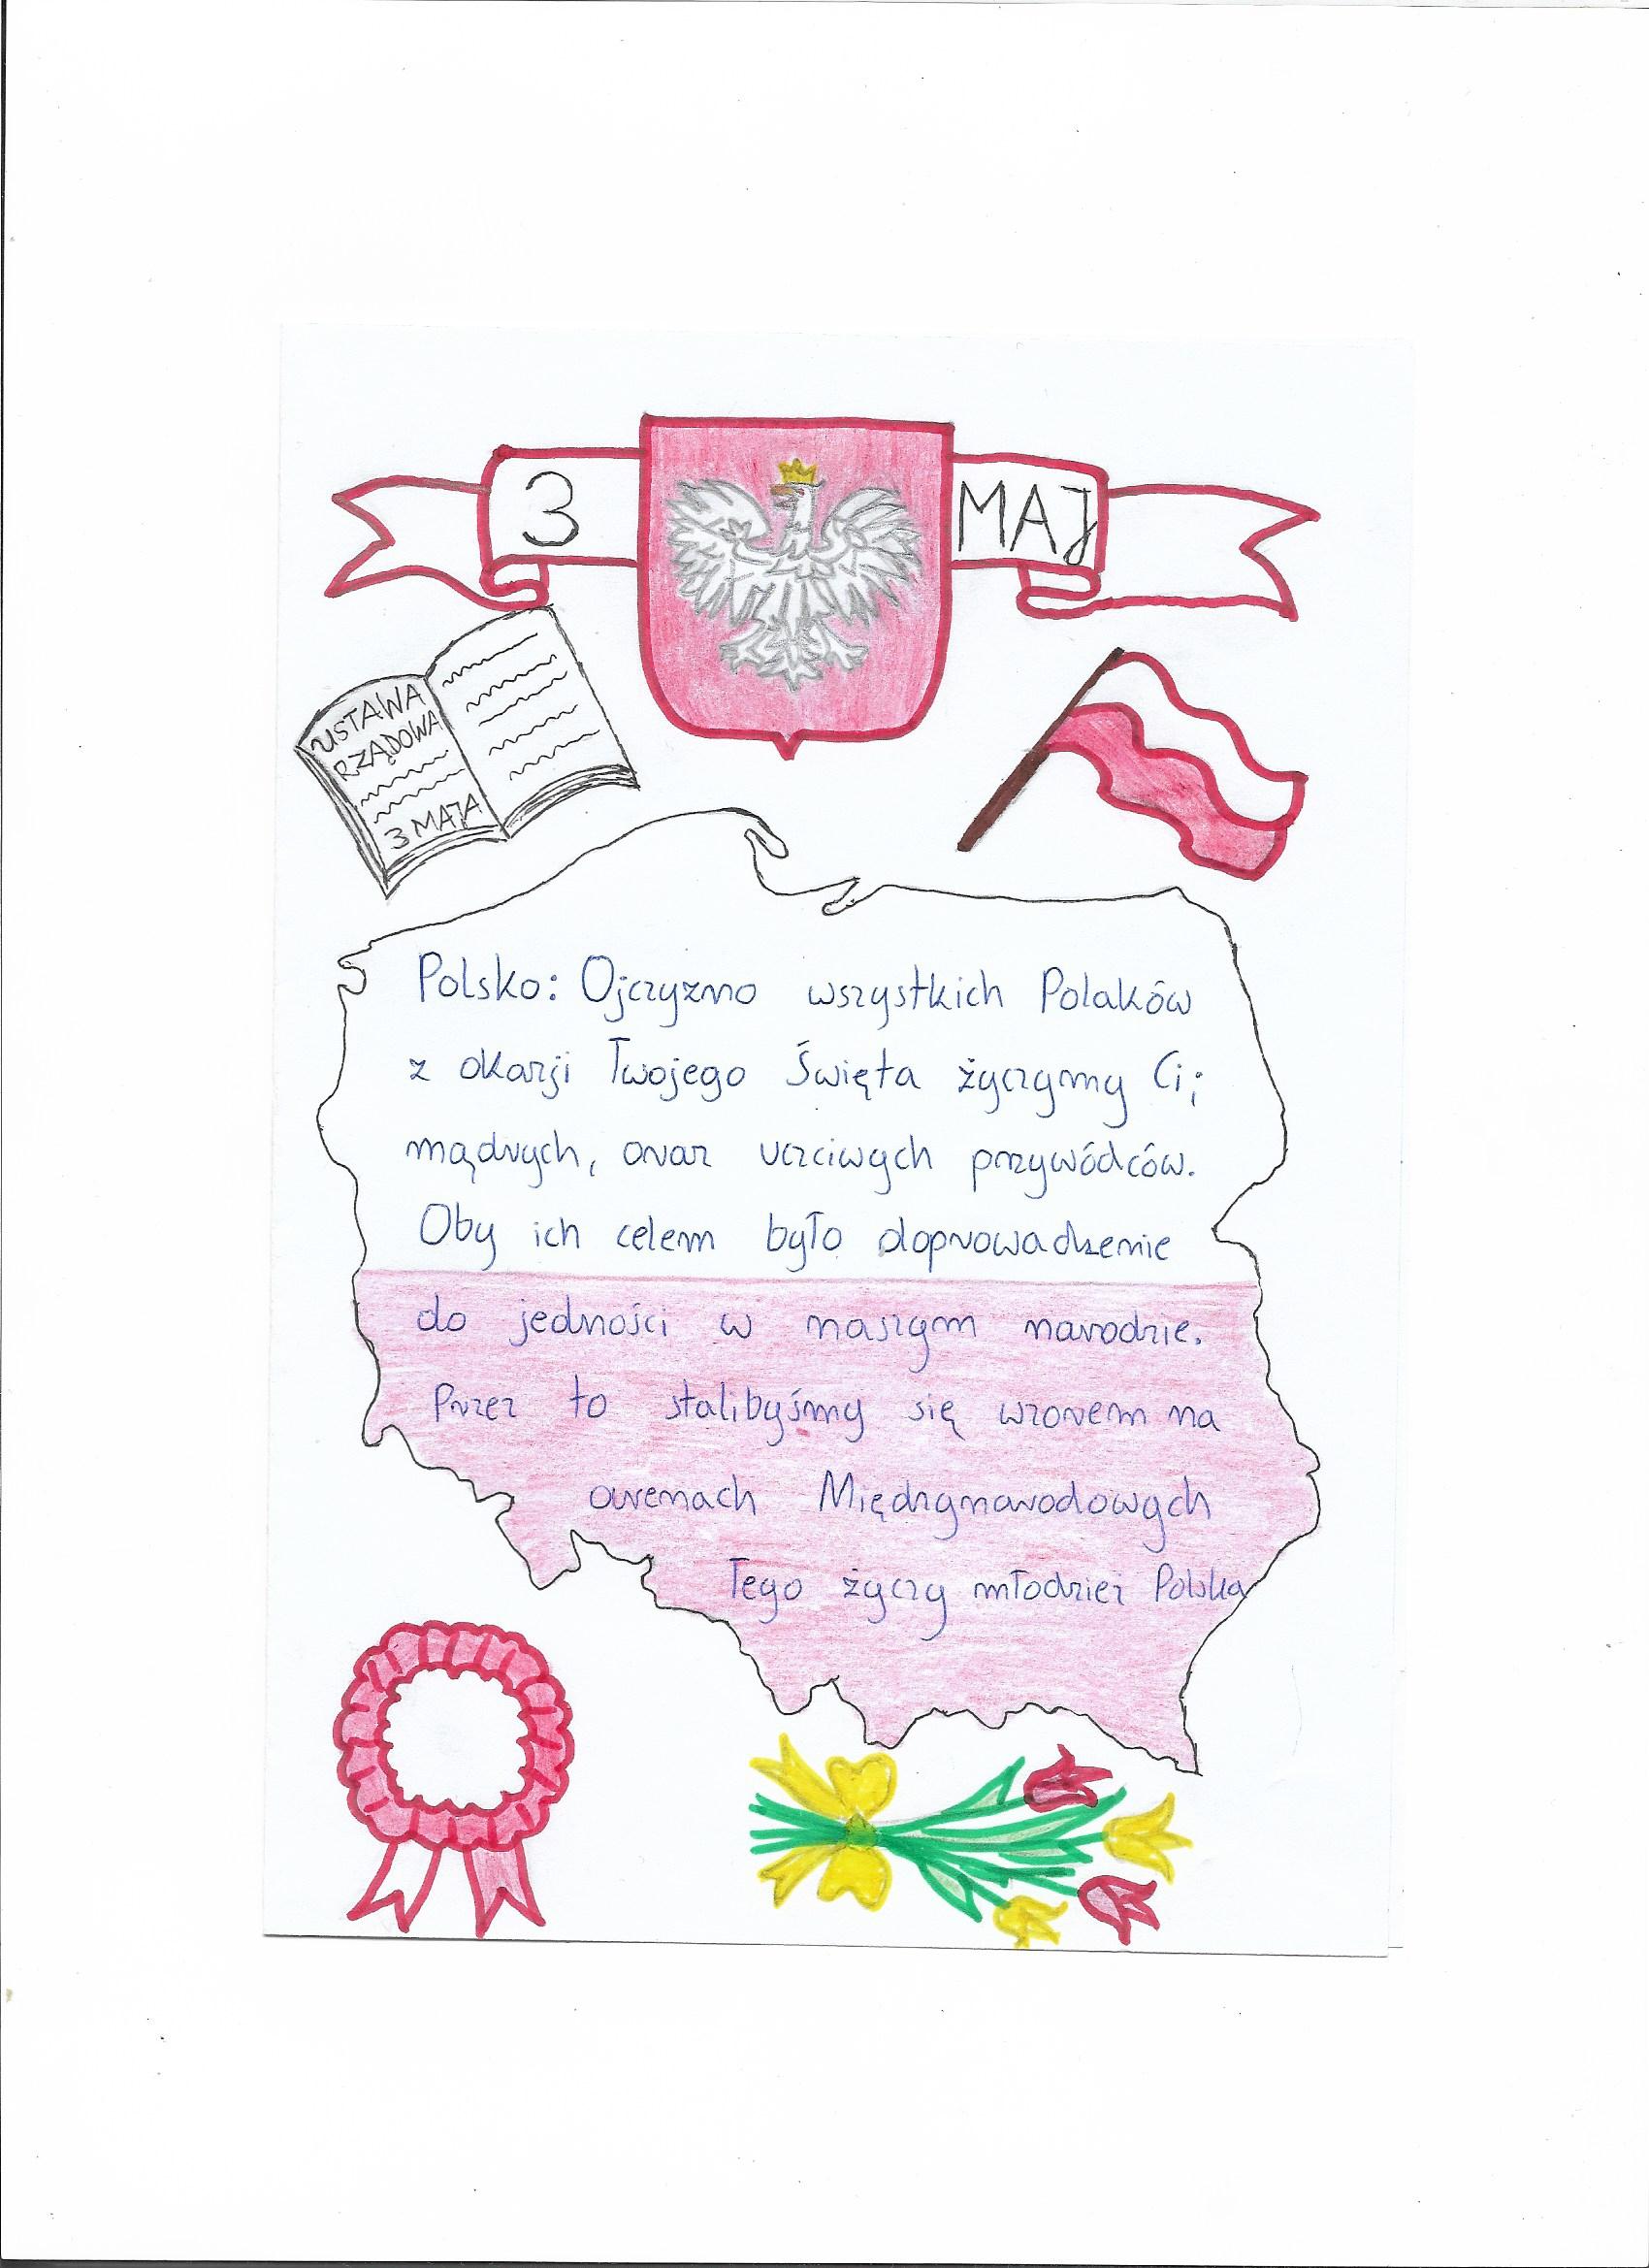 3 MAJ
USTAWA
RZĄDOWA
3 MAJA
Polsko: Ojczyzno wszystkich Polaków
z okazji Twojego Święta życzymy Ci;
mądrych, oraz uczciwych przywódców.
Oby ich celem było doprowadzenie
do jedności w naszym narodzie.
Przez to stalibyśmy się wzorem na
arenach Międzynarodowych
Tego życzy młodzież Polska